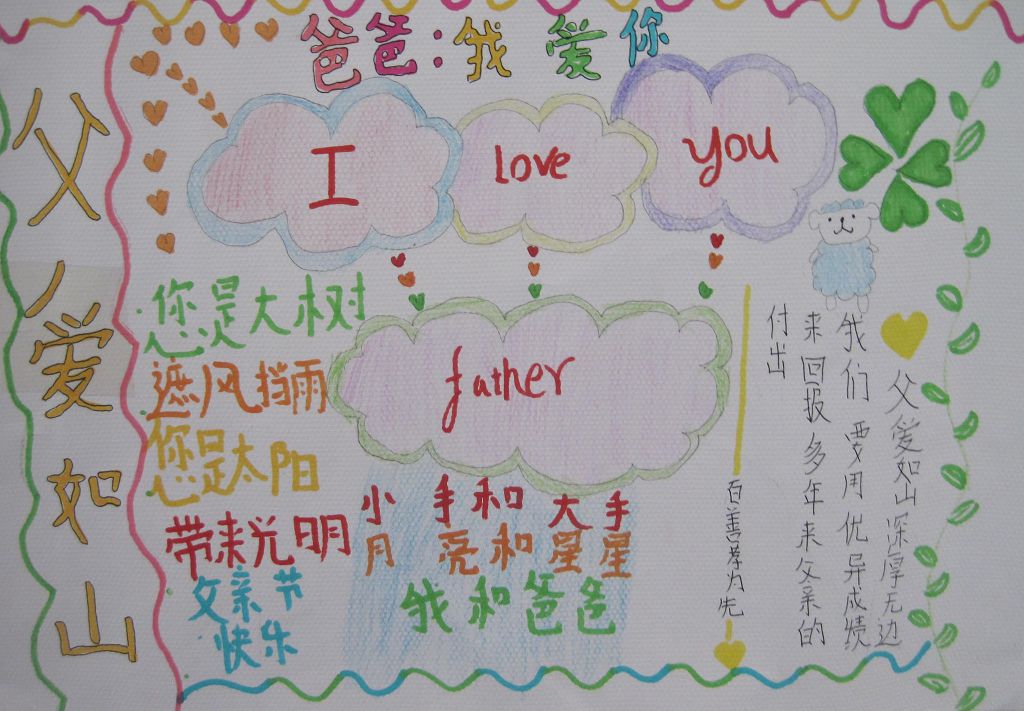 爸爸:我爱你
父爱如山
I love you
father
您是大树
遮风挡雨
您是太阳
带来光明
父亲节
快乐
小手和大手
月亮和星星
我和爸爸
父爱如山深厚无边
我们要用优异成绩
来回报多年来父亲的
付出
百善孝为先